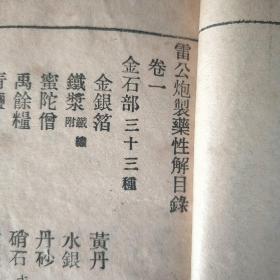 雷公炮製藥性解目錄
卷一
金石部三十三種
金銀箔 黃丹
鐵漿附鐵鏽 水銀
蜜陀僧 丹砂
禹餘糧 硝石